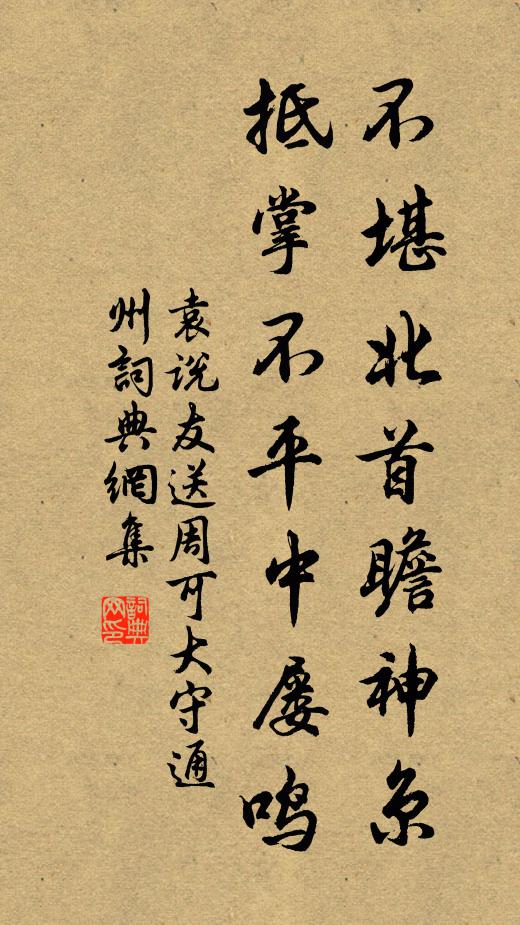 不堪北首瞻神京
抵掌不平中屡鳴
袁说友送周可大守通
州詞典網集
詞典网印